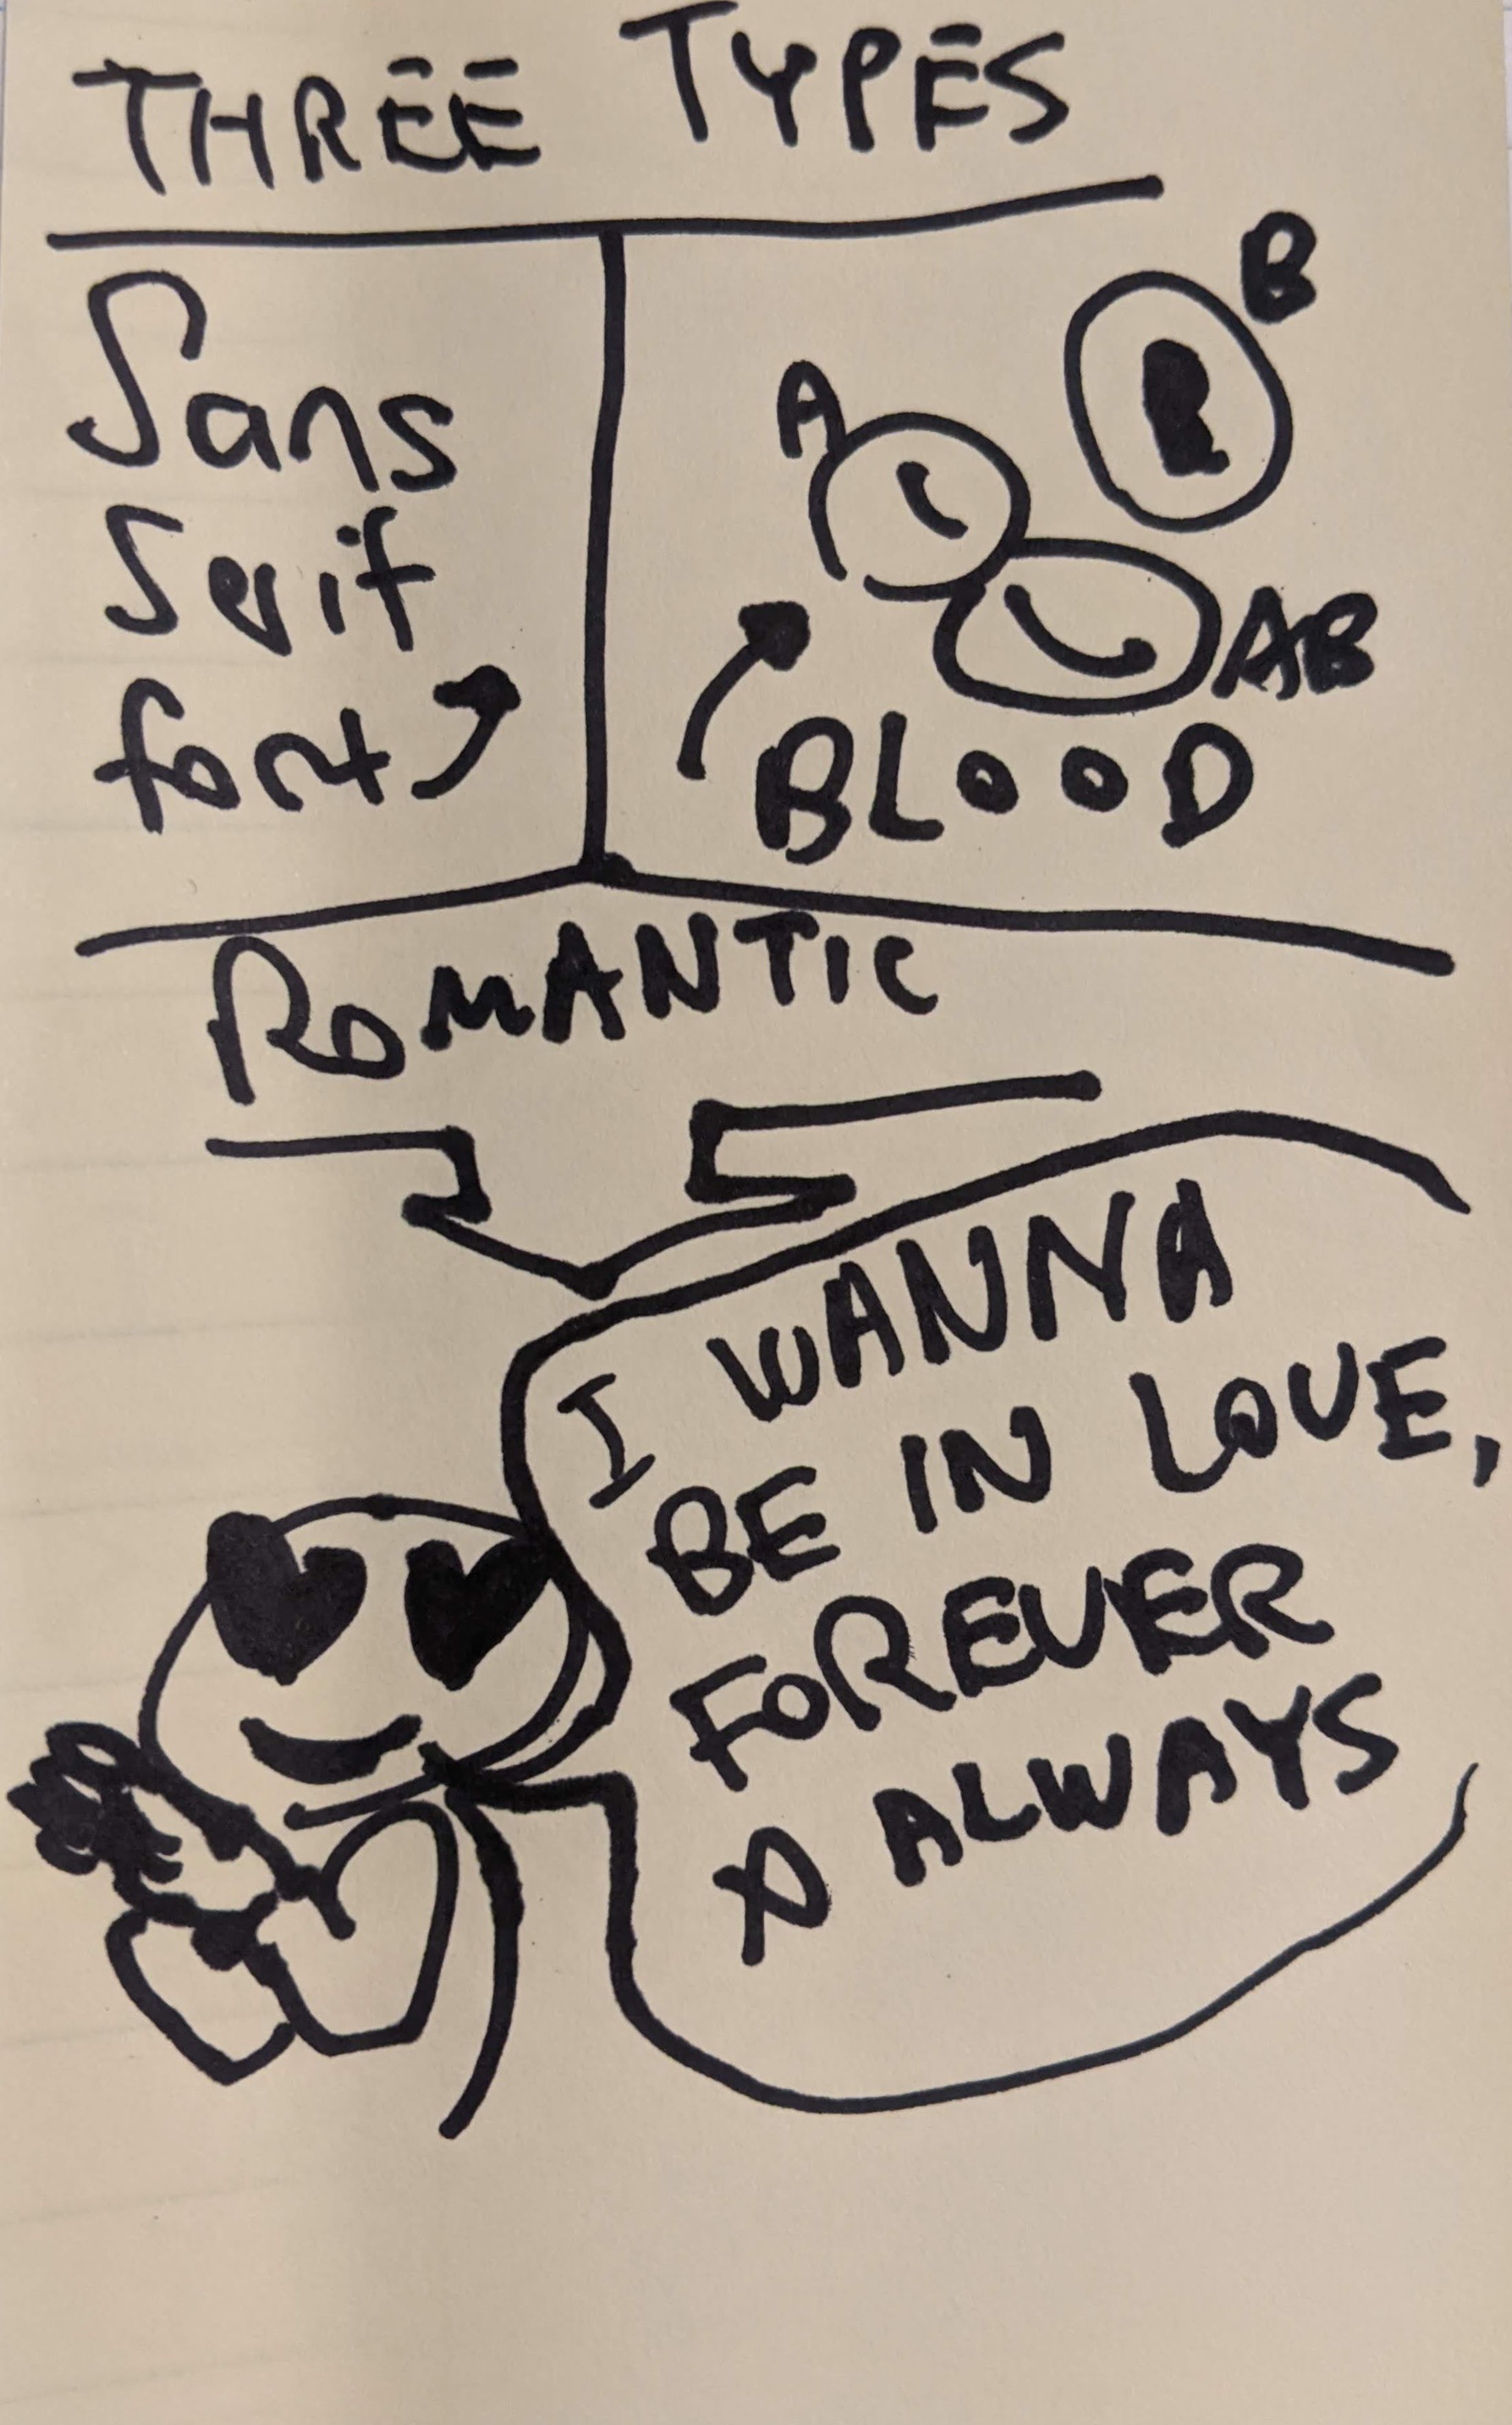 THREE TYPES
Sans
Serif
font
B
A
AB
BLOOD
ROMANTIC
I WANNA
BE IN LOVE,
FOREVER
& ALWAYS